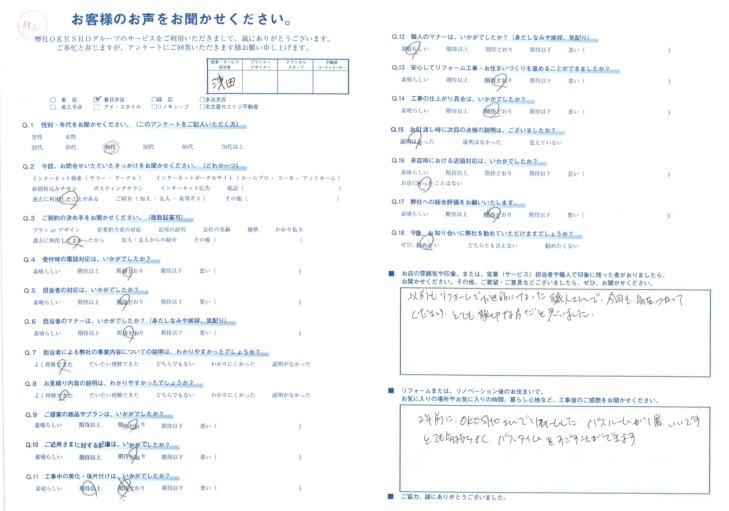 お客様のお声をお聞かせください。
弊社OKESHOグループのサービスをご利用いただきまして、誠にありがとうございます。
ご多忙と存じますが、アンケートにご回答いただきます様お願い申し上げます。
営業・サービス担当者 プランナーデザイナー テクニカルスタッフ 不動産コーディネーター
浅田
□ 本店 ☑ 春日井店 □ 緑店 □ 多治見店
□ 長久手店 □ アイ・スタイル □ リノキューブ □ 名古屋Rエイジ不動産
Q.1 性別・年代をお聞かせください。（このアンケートをご記入いただく方）
男性 女性
20代 30代 40代 50代 60代 70代以上
Q.2 今回、お問合せいただいたきっかけをお聞かせください。（どれか一つ）
インターネット検索（ヤフー・グーグル） インターネットポータルサイト（ホームプロ・スーモ・アットホーム）
新聞折込みチラシ ポスティングチラシ インターネット広告 雑誌（ ）
過去に利用したことがある ご紹介（知人・友人・東邦ガス） その他（ ）
Q.3 ご契約の決め手をお聞かせください。（複数回答可）
プラン or デザイン 営業担当者の対応 近所の評判 会社の実績 価格 わかり易さ
過去に利用してよかったから 知人・友人からの紹介 その他（ ）
Q.4 受付時の電話対応は、いかがでしたか？
素晴らしい 期待以上 期待どおり 期待以下 悪い（ ）
Q.5 担当者の対応は、いかがでしたか？
素晴らしい 期待以上 期待どおり 期待以下 悪い（ ）
Q.6 担当者のマナーは、いかがでしたか？（身だしなみや挨拶、気配り）
素晴らしい 期待以上 期待どおり 期待以下 悪い（ ）
Q.7 担当者による弊社の事業内容についての説明は、わかりやすかったでしょうか？
よく理解できた だいたい理解できた どちらでもない わかりにくかった 説明がなかった
Q.8 お見積り内容の説明は、わかりやすかったでしょうか？
よく理解できた だいたい理解できた どちらでもない わかりにくかった 説明がなかった
Q.9 ご提案の商品やプランは、いかがでしたか？
素晴らしい 期待以上 期待どおり 期待以下 悪い（ ）
Q.10 ご近所さまに対する配慮は、いかがでしたか？
素晴らしい 期待以上 期待どおり 期待以下 悪い（ ）
Q.11 工事中の美化・後片付けは、いかがでしたか？
素晴らしい 期待以上 期待どおり 期待以下 悪い（ ）
Q.12 職人のマナーは、いかがでしたか？（身だしなみや挨拶、気配り）
素晴らしい 期待以上 期待どおり 期待以下 悪い（ ）
Q.13 安心してリフォーム工事・お住まいづくりを進めることができましたか？
素晴らしい 期待以上 期待どおり 期待以下 悪い（ ）
Q.14 工事の仕上がり具合は、いかがでしたか？
素晴らしい 期待以上 期待どおり 期待以下 悪い（ ）
Q.15 お引渡し時に次回の点検の説明は、ございましたか？
説明はあった 説明はなかった 覚えていない
Q.16 来店時における店頭対応は、いかがでしたか？
素晴らしい 期待以上 期待どおり 期待以下 悪い（ ）
お店に行ったことはない
Q.17 弊社への総合評価をお願いいたします。
素晴らしい 期待以上 期待どおり 期待以下 悪い（ ）
Q.18 今後、お知り合いに弊社を勧めていただけますでしょうか？
ぜひ、勧めたい どちらとも言えない 勧めたくない
■ お店の雰囲気や印象、または、営業（サービス）担当者や職人で印象に残った者がおりましたら、
お聞かせください。その他、ご要望・ご意見などございましたら、ぜひ、お聞かせください。
以前もリフォームでお世話になった職人さんで、今回も気をつかって
ください、とても親切な方だと思いました。
■ リフォームまたは、リノベーション後のお住まいで、
お気に入りの場所やお気に入りの時間、暮らし心地など、工事後のご感想をお聞かせください。
2年前に、OKESHOさんでリフォームした バスルームが1番 いいです
とても気持ちよく、バスタイムをすごすことができます
■ ご協力、誠にありがとうございました。